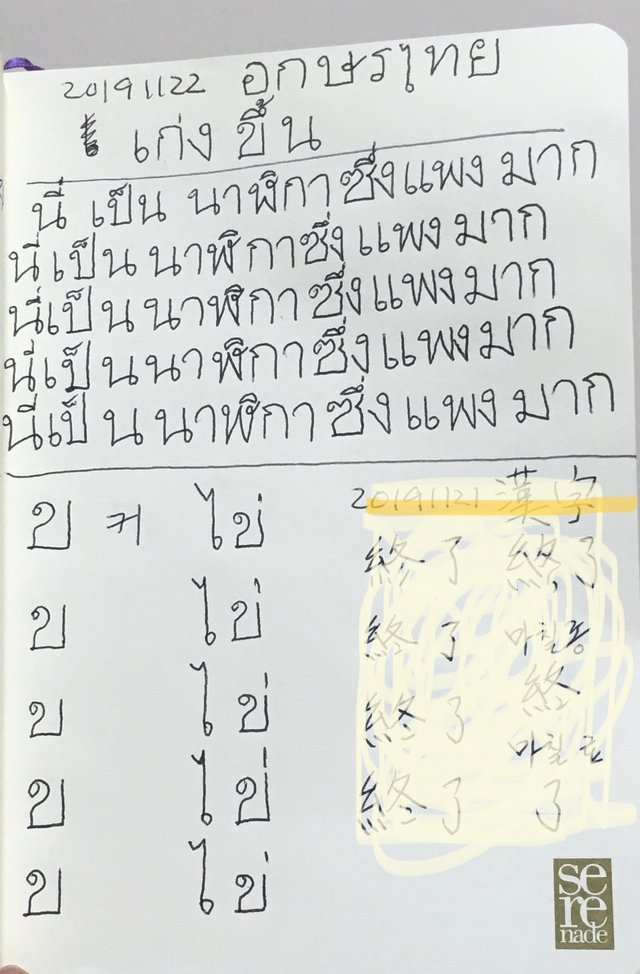 20191122 อกษรไทย
เก่ง ขึ้น
นี่ เป็น นาฬิกา ซึ่งแพง มาก
นี่เป็น นาฬิกาซึ่ง แพง มาก
นี่เป็น นาฬิกา ซึ่งแพง มาก
นี่เป็นนาฬิกาซึ่งแพงมาก
นี่เป็น นาฬิกา ซึ่ง แพง มาก
ข 커 ไข่
ข ไข่
ข ไข่
ข ไข่
ข ไข่
20191121 漢字
終了 終了
終了 마칠종
終
終了
마칠료
終了 了
serenade